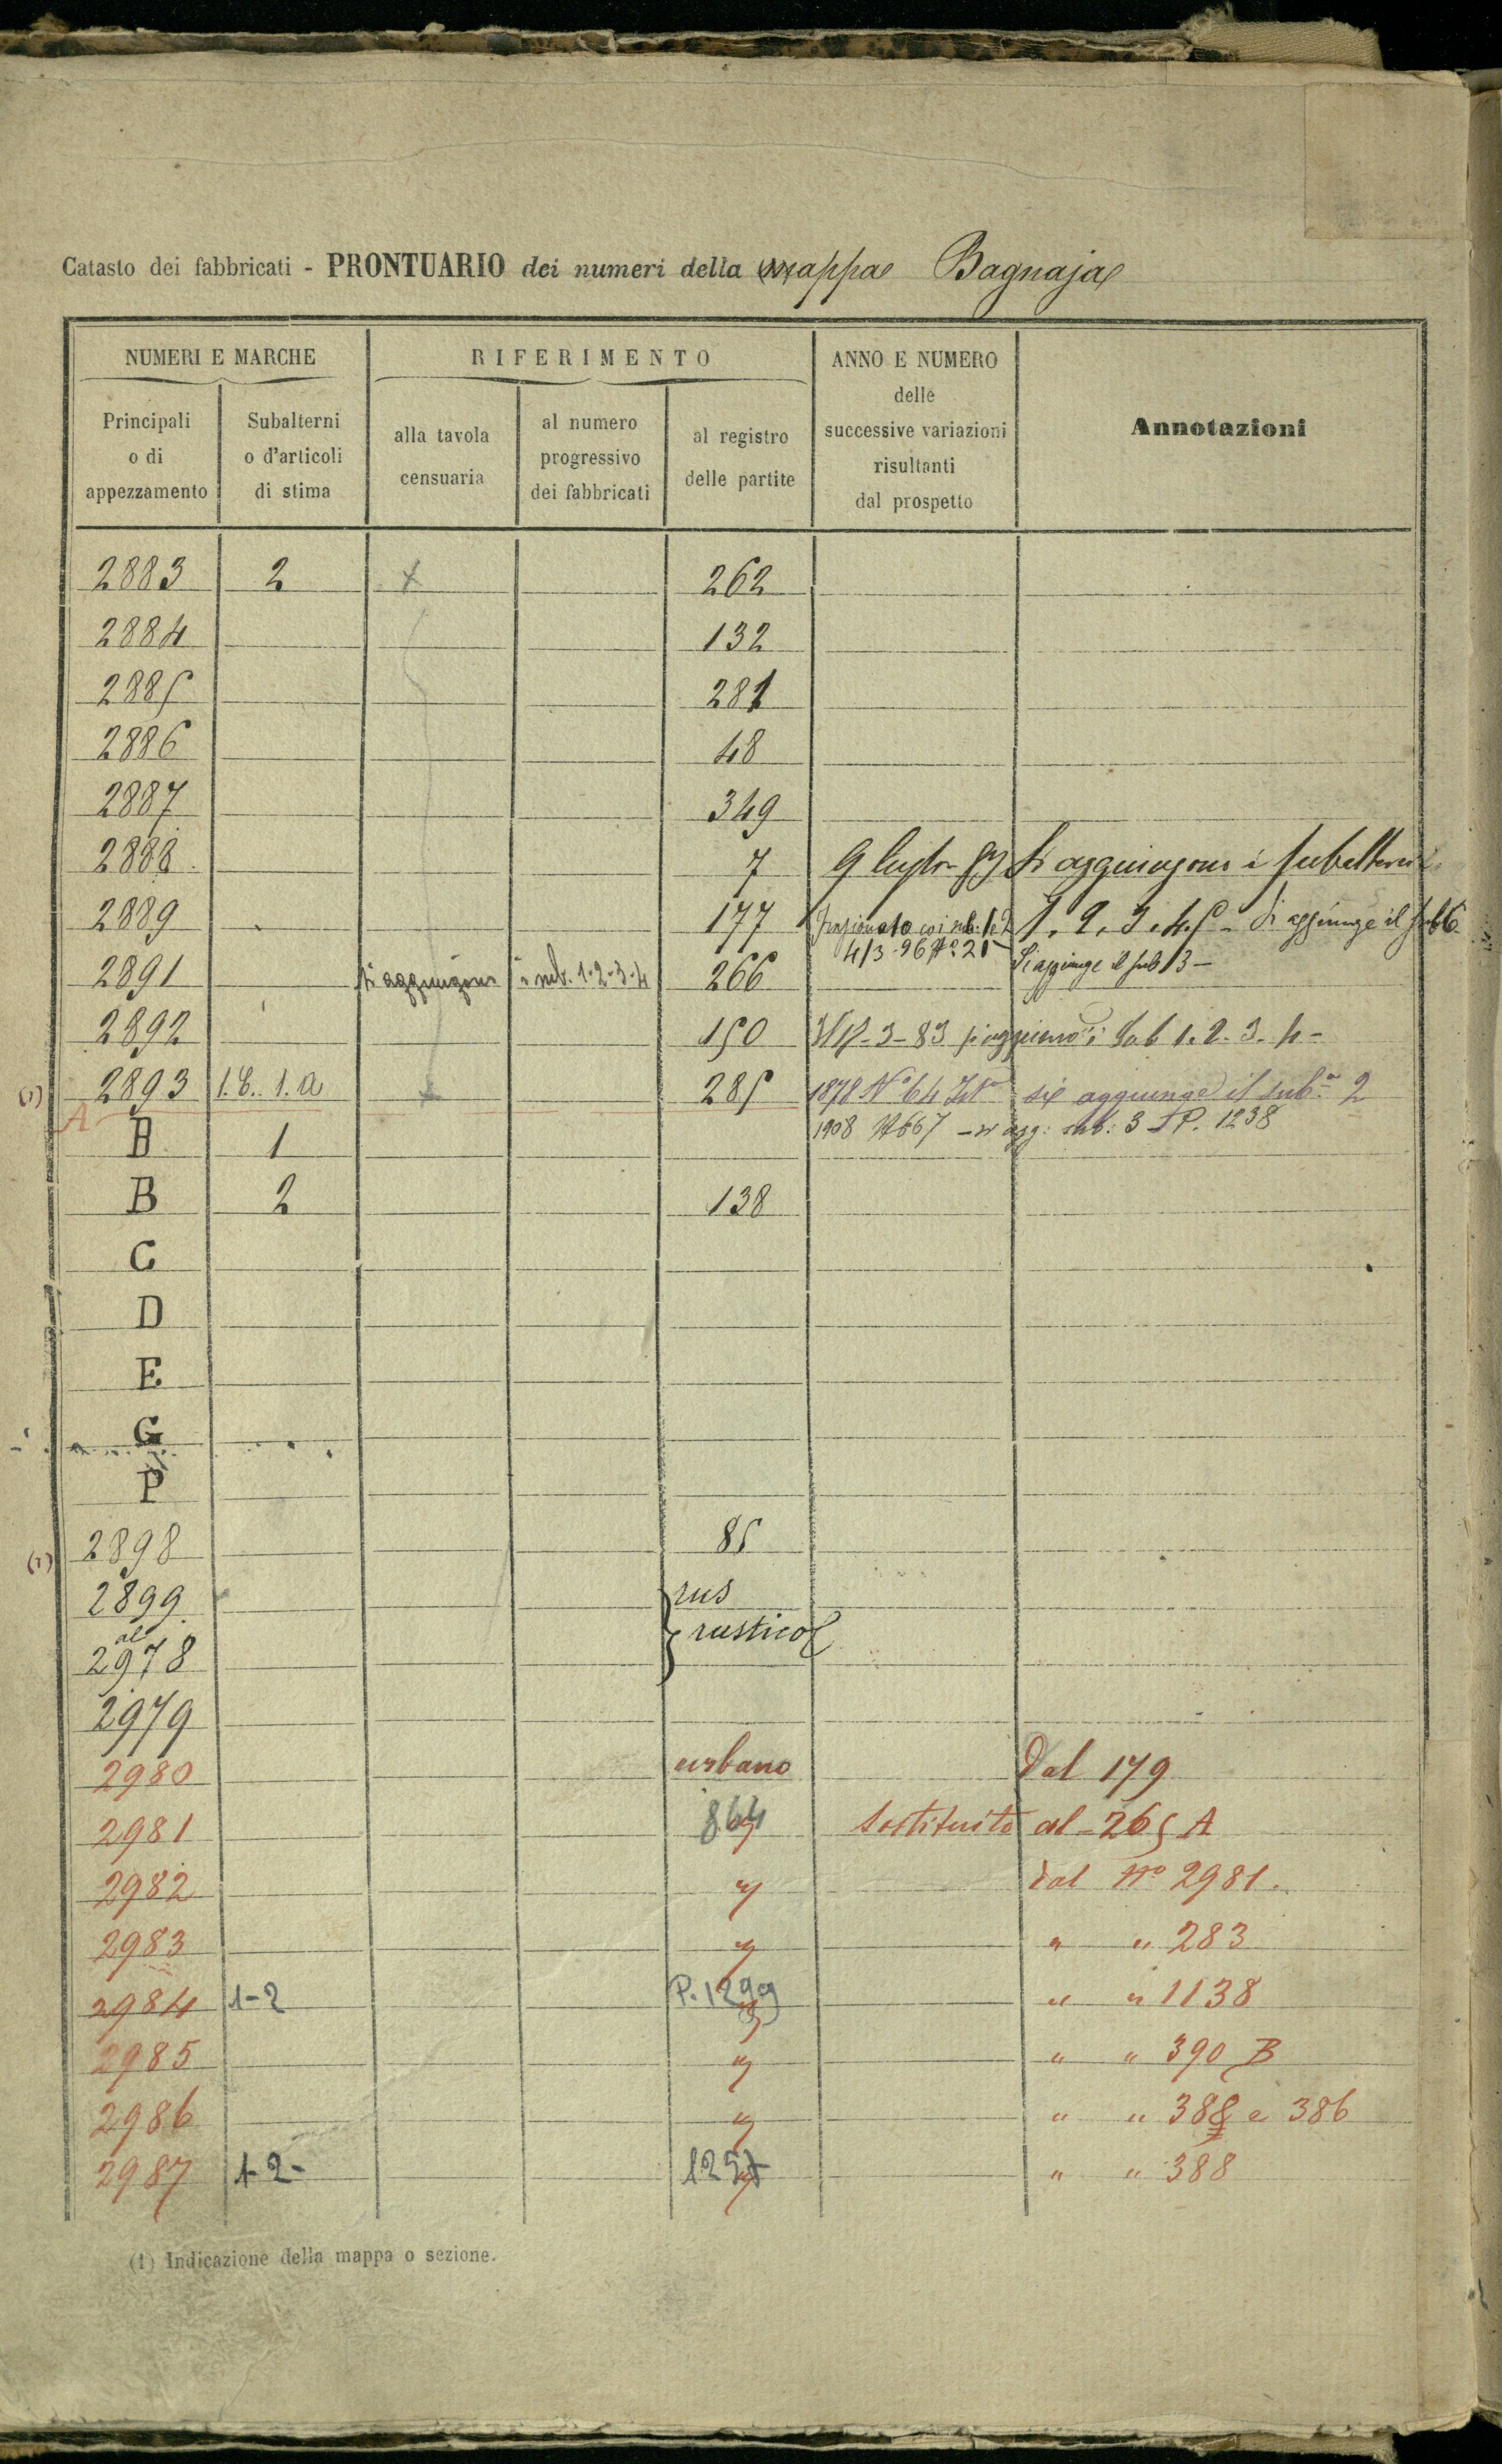 Catasto dei fabbricati - PRONTUARIO dei numeri della mappa Bagnaja
NUMERI E MARCHE
RIFERIMENTO
ANNO E NUMERO
delle
successive variazioni
risultanti
dal prospetto
Annotazioni
Principali
o di
appezzamento
Subalterni
o d'articoli
di stima
alla tavola
censuaria
al numero
progressivo
dei fabbricati
al registro
delle partite
2883 2 x 262
2884 132
2885 281
2886 48
2887 349
2888 7 9 si aggiungono i subalterni
2889 177 frazionato coi sub. 1. 2 1. 2. 3. 4. 5 - Si aggiunge il sub 6
4/3-96 N° 21 Si aggiunge il sub 3 -
2891 si aggiungono i sub. 1-2-3-4 266
2892 150 3-83 i Sub 1. 2. 3. 4 -
(1) 2893 1. 1.a x 285 1878 N° 64 si aggiunge il sub.° 2
A 1908 N 667 - si agg: sub: 3 - P. 1238
B 1
B 2 138
C
D
E
G
P
(1) 2898 85
2899 rus
al rustico
2978
2979
2980 urbano Dal 179
2981 864 " Sostituito al - 265 A
2982 " Dal N° 2981.
2983 " " " 283
2984 1-2 P. 1299 " " " 1138
2985 " " " 390 B
2986 " " " 388 e 386
2987 1-2- 1257 " " " 388
(1) Indicazione della mappa o sezione.